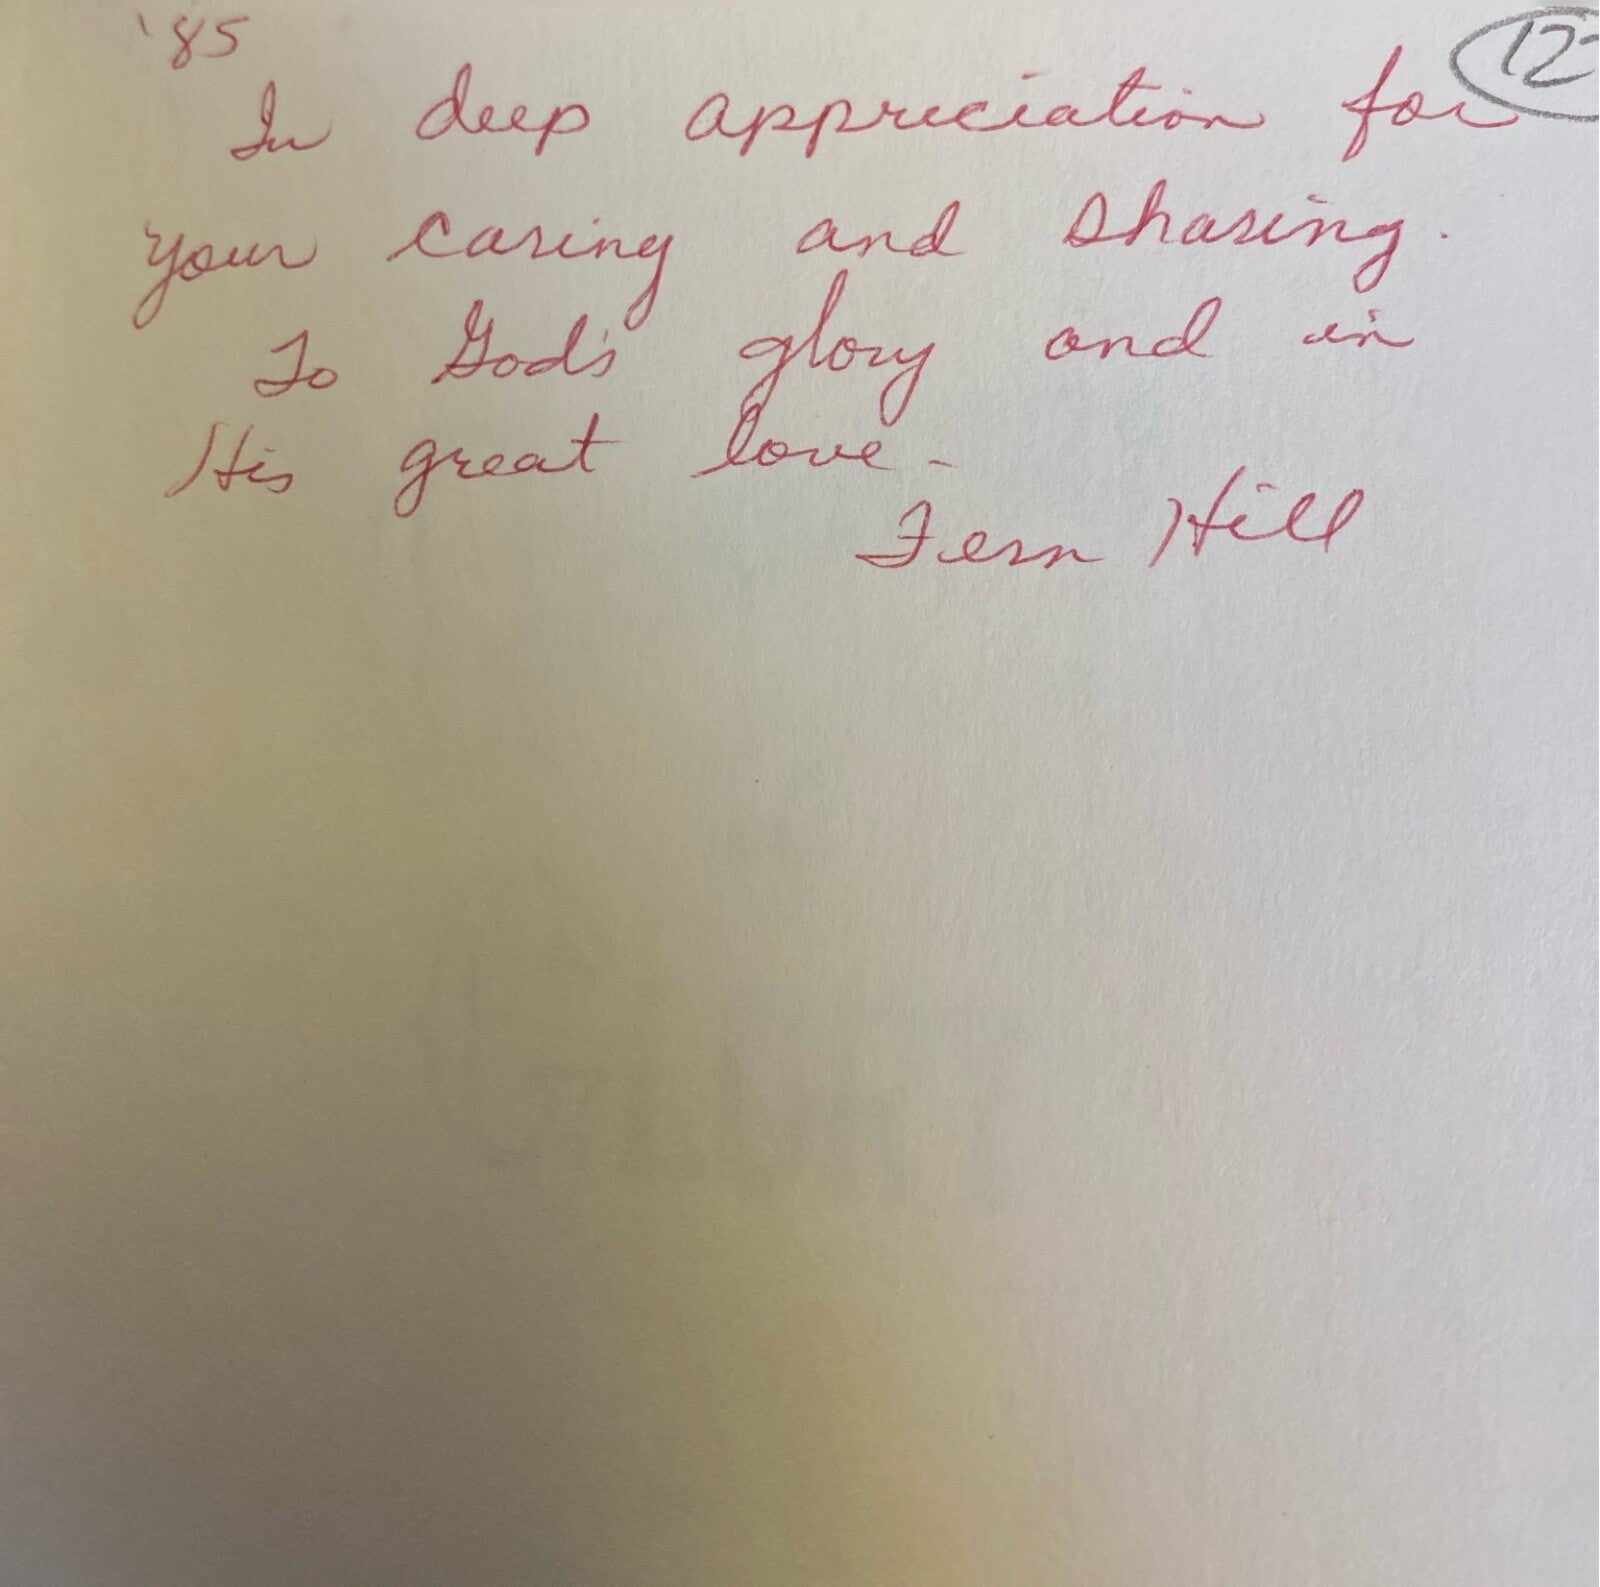 '85
12
In deep appreciation for
your caring and sharing.
To God's glory and in
His great love -
Fern Hill